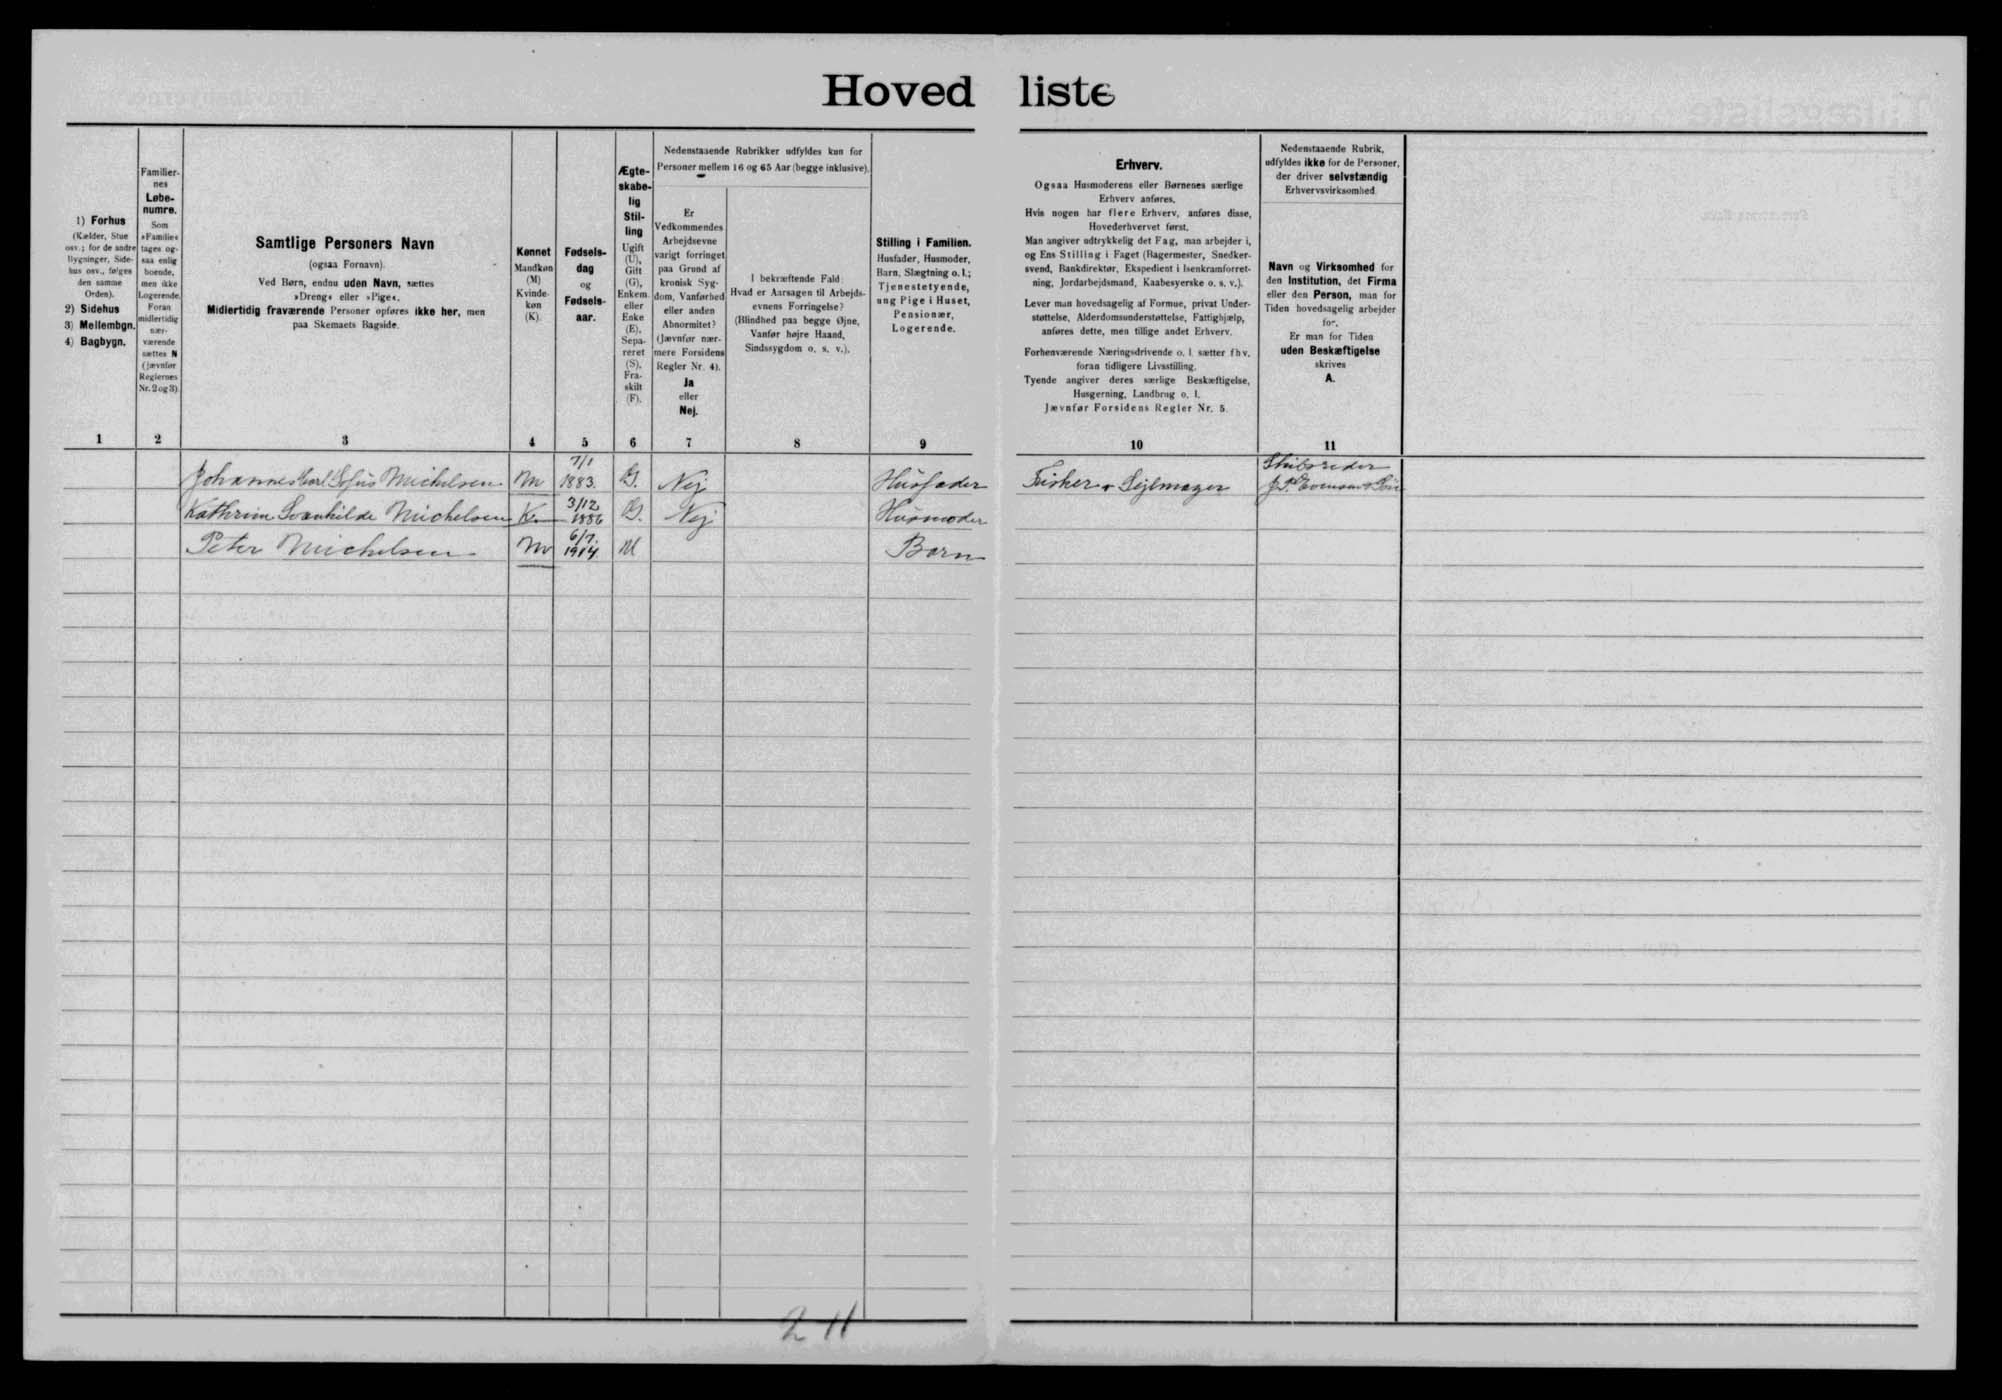 Hovedliste
1) Forhus
(Kælder, Stue
osv.; for de andre
Bygninger, Side-
hus osv., følges
den samme
Orden).
2) Sidehus
3) Mellembgn.
4) Bagbygn.
Familier-
nes
Løbe-
numre.
Som
»Familie«
tages og-
saa enlig
boende,
men ikke
Logerende.
Foran
midlertidig
nær-
værende
sættes N
(jævnfør
Reglernes
Nr. 2 og 3).
Samtlige Personers Navn
(ogsaa Fornavn).
Ved Børn, endnu uden Navn, sættes
»Dreng« eller »Pige«.
Midlertidig fraværende Personer opføres ikke her, men
paa Skemaets Bagside.
Kønnet
Mandkøn
(M)
Kvinde-
køn
(K).
Fødsels-
dag
og
Fødsels-
aar.
Ægte-
skabe-
lig
Stil-
ling
Ugift
(U),
Gift
(G),
Enkem.
eller
Enke
(E),
Sepa-
reret
(S),
Fra-
skilt
(F).
Nedenstaaende Rubrikker udfyldes kun for
Personer mellem 16 og 65 Aar (begge inklusive).
Er
Vedkommendes
Arbejdsevne
varigt forringet
paa Grund af
kronisk Syg-
dom, Vanførhed
eller anden
Abnormitet?
(Jævnfør nær-
mere Forsidens
Regler Nr. 4).
Ja
eller
Nej.
I bekræftende Fald:
Hvad er Aarsagen til Arbejds-
evnens Forringelse?
(Blindhed paa begge Øjne,
Vanfør højre Haand,
Sindssygdom o. s. v.).
Stilling i Familien.
Husfader, Husmoder,
Barn, Slægtning o. l.;
Tjenestetyende,
ung Pige i Huset,
Pensionær,
Logerende.
Erhverv.
Ogsaa Husmoderens eller Børnenes særlige
Erhverv anføres.
Hvis nogen har flere Erhverv, anføres disse,
Hovederhvervet først.
Man angiver udtrykkelig det Fag, man arbejder i,
og Ens Stilling i Faget (Bagermester, Snedker-
svend, Bankdirektør, Ekspedient i Isenkramforret-
ning, Jordarbejdsmand, Kaabesyerske o. s. v.).
Lever man hovedsagelig af Formue, privat Under-
støttelse, Alderdomsunderstøttelse, Fattighjælp,
anføres dette, men tillige andet Erhverv.
Forhenværende Næringsdrivende o. l. sætter fhv.
foran tidligere Livsstilling.
Tyende angiver deres særlige Beskæftigelse,
Husgerning, Landbrug o. l.
Jævnfør Forsidens Regler Nr. 5.
Nedenstaaende Rubrik,
udfyldes ikke for de Personer,
der driver selvstændig
Erhvervsvirksomhed.
Navn og Virksomhed for
den Institution, det Firma
eller den Person, man for
Tiden hovedsagelig arbejder
for.
Er man for Tiden
uden Beskæftigelse
skrives
A.
1 2 3 4 5 6 7 8 9 10 11
Johannes Carl Sofus Michelsen M 7/1 1883. G. Nej Husfader Fisker & Sejlmager Skibsreder
Kathrine Svanhilde Michelsen K 3/12 1886 G. Nej Husmoder
Peter Michelsen M 6/7. 1914. U Barn
211